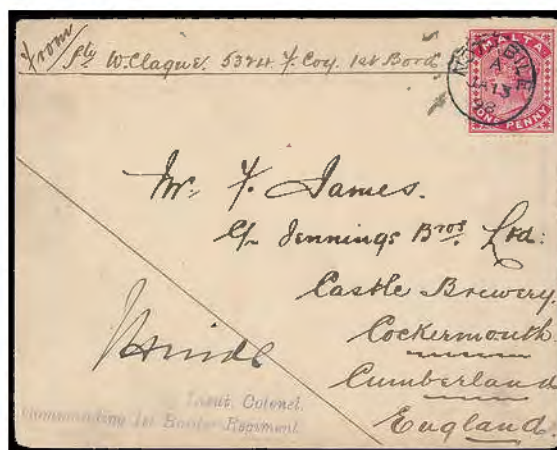 From
Pte W. Clague. 5324 F. Coy. 1st Bord
MALTA
ONE PENNY
NOTABILE
A
JA 13
98
Mr. F. James.
C/o Jennings Bros. Ltd:
Castle Brewery.
Cockermouth.
Cumberland
England
Lieut. Colonel.
Commanding 1st Border Regiment